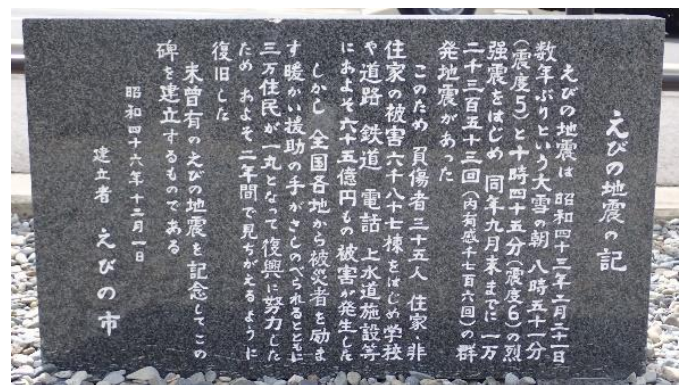 えびの地震の記
えびの地震は 昭和四十三年二月二十一日
数年ぶりという大雪の朝 八時五十一分
(震度5)と十時四十五分(震度6)の烈
強震をはじめ 同年九月末までに一万
二千三百五十三回(内有感千七百六回)の群
発地震があった
このため 負傷者三十五人 住家 非
住家の被害六千八十七棟をはじめ学校
や道路 鉄道 電話 上水道施設等
におよそ六十五億円もの被害が発生した
しかし 全国各地から被災者を励ま
す暖かい援助の手がさしのべられるとともに
三万住民が一丸となって復興に努力した
ため およそ二年間で見ちがえるように
復旧した
末曽有のえびの地震を記念してこの
碑を建立するものである
昭和四十六年十二月一日
建立者 えびの市